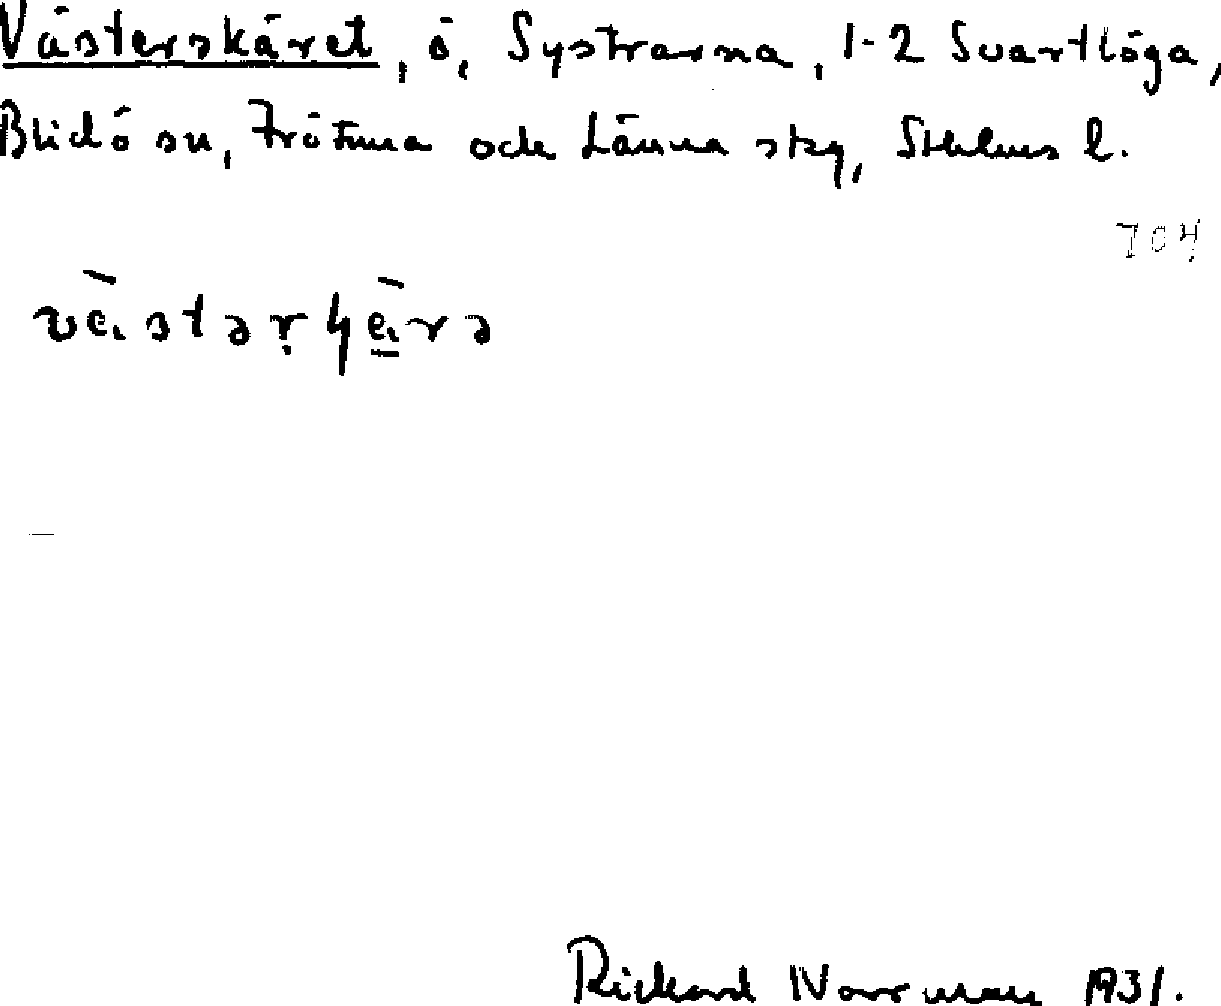 Västerskäret, ö, Systrarna, 1-2 Svartlöga,
Blidö sn, Frötuna och Länna skg, Sthlms l.
704
Rickard Norrman 1931.